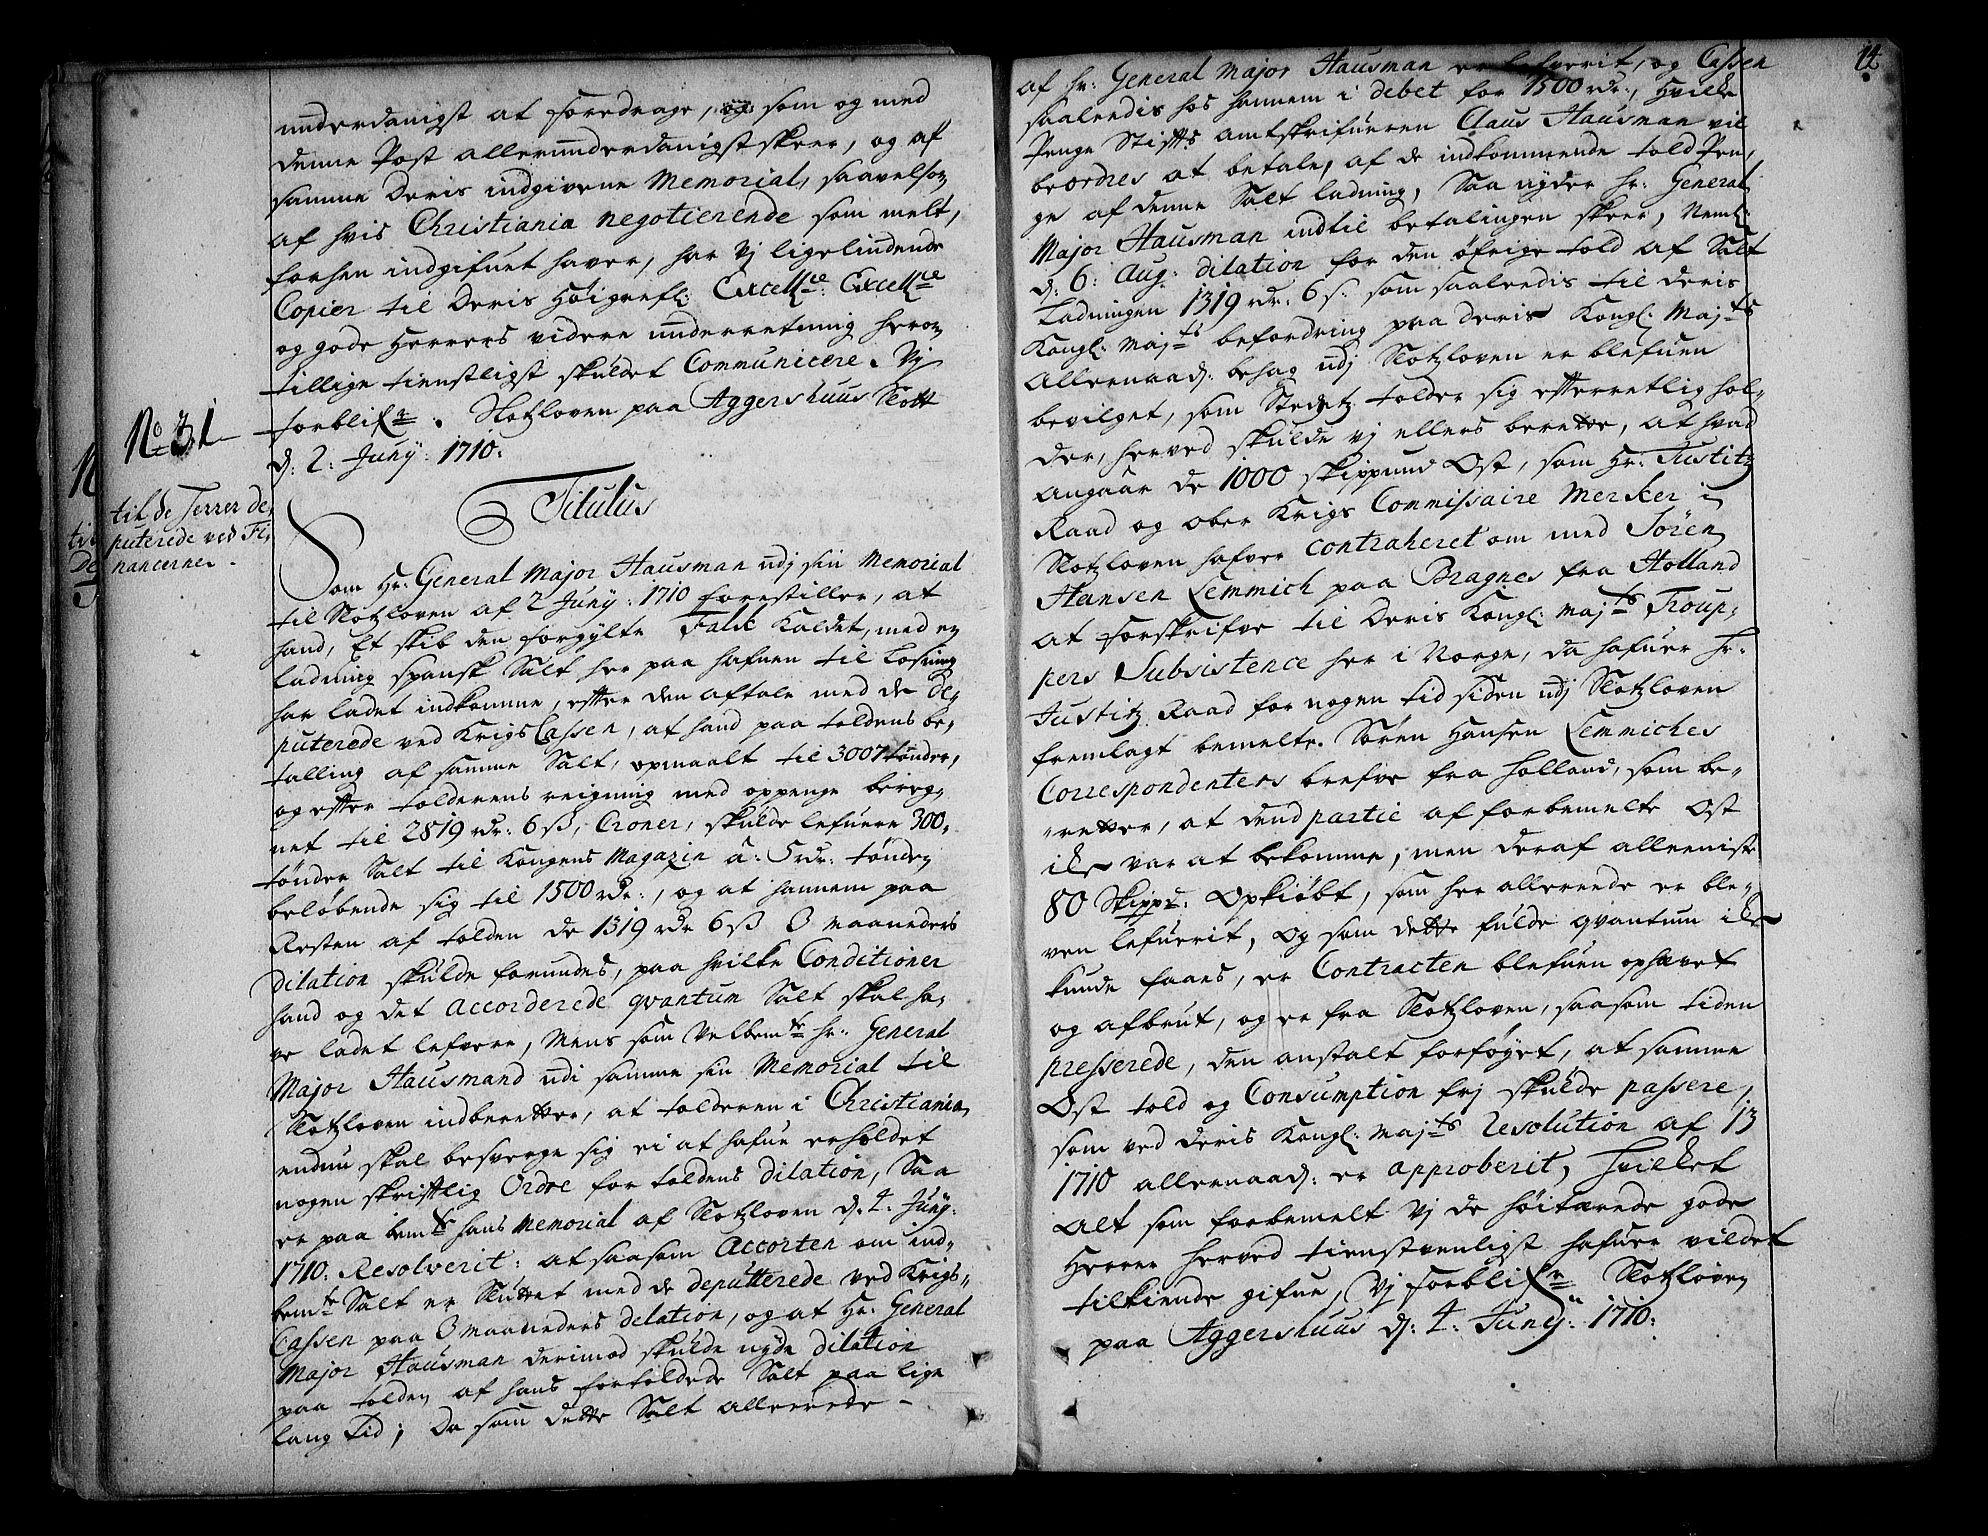 underdanigst at foredrage, og som og med
denne Post allerunderdanigst skeer, og af
samme Deris indgivene Memorial, saavelsom
af hvis Christiania negotierende som melt,
forhen indgifuet hafver, har Vj ligelindende
Copier til Deris Höigrefl: Excellce: Excellce
og gode Herrers videre underretning herom
tillige tienstligst skuldet Communicere. Vj
forblifr. Slotzloven paa Aggershuus Slott
d: 2: Junÿ: 1710:
No 31
til de Herrer De,
puterede ved Fi,
nancerne.
Titulus
Som Hr: General Major Hausman udj sin Memorial
til Slotzloven af 2 Junÿ: 1710 forestiller, at
hand, Et skib den forgylte Falk Kaldet, med en
ladning spansk Salt her paa hafnen til Losning
har ladet indkomme, efter den aftale med de De,
puterede ved Krigs Cassen, at hand paa toldens be,
talling af samme Salt, opmaalt til 3007 tönder,
og efter tolderens reigning med oppenge bereg,
net til 2819 rdr: 6 ß, Croner, skulde lefuere 300,
tönder Salt til Kongens Magazin a: 5 rdr: tönden
belöbende sig til 1500 rdr:, og at hannem paa
Resten af tolden de 1319 rdr 6 ß 3 maaneders
dilation skulde forundes, paa hvilke Conditioner
hand og det accorderede qvantum Salt skal ha,
ve ladet lefvere, Mens som Velbemte hr: General
Major Hausmand udi samme sin Memorial til
Slotzloven indberetter, at tolderen i Christiania
endnu skal besverge sig ei at hafue erholdet
nogen skriftlig Ordre for toldens dilation, Saa
er paa bemte hans Memorial af Slotzloven d: 4: Junÿ:
1710: Resolverit: at saasom Accorten om ind,
bemte Salt er Sluttet med de deputterede ved Krigs,
Cassen paa 3 maaneders delation, og at Hr: General
Major Hausman derimod skulde nyde dilation
paa tolden af hans fortoldede Salt paa lige
lang tid; Da som dette Salt allerede
14
af hr: General Major Hausman er lefverit, og Cassen
saaledis hos hannem i debet for 1500 rdr:, hvilke
Penge Stiftts amtskrifueren Claus Hausman vil
beordres at betale, af de indkommende told Pen,
ge af denne Salt ladning, Saa nyder hr: General
Major Hausman indtil betalingen skeer, Neml:
d: 6: Aug: dilation for den öfrige told af Salt
Ladningen 1319 rdr: 6 ß: som saaledis til deris
Kongl: Majts befordring paa Deris Kongl: Majts
Allernaad: behag udj Slotzloven er blefuen
bevilget, som Stedetz tolder sig efterretlig hol,
der, herved skulde vj ellers berette, at hvad
angaar de 1000 skippund Ost, som Hr: Justitz
Raad og ober Krigs Commissaire Merker i
Slotzloven hafver contraheret om med Sören
Hansen Lemmich paa Bragnes fra Holland
at forskrifve til Deris Kongl: Majts Troup,
pers Subsistence her i Norge, da hafuer Hr:
Justitz Raad for nogen tid siden udj Slotzloven
fremlagt bemelte. Sören Hansen Lemmiches
Correspondenters brefve fra Holland, som be,
retter, at dend partie af forbemelte Ost
ike var at bekomme, men deraf alleeniste
80 Skippd: Opkiöbt, som her allerede er ble,
ven lefuerit, Og som dette fulde qvantum ike
kunde faaes, er Contracten blefuen ophævet
og afbrut, og er fra Slotzloven, saasom tiden
presserede, den anstalt forföyet, at samme
Ost told og Consumption frj skulde passere,
som ved Deris Kongl: Majts Resolution af 13
1710 allernaad: er approberit, hvilket
alt som forbemelt Vj de höitærede gode
Herrer herved tienstvenligst hafuer vildet
tilkiende gifue, Vj forblifr Slotzloven
paa Aggershuus d: 4: Junÿ: 1710: